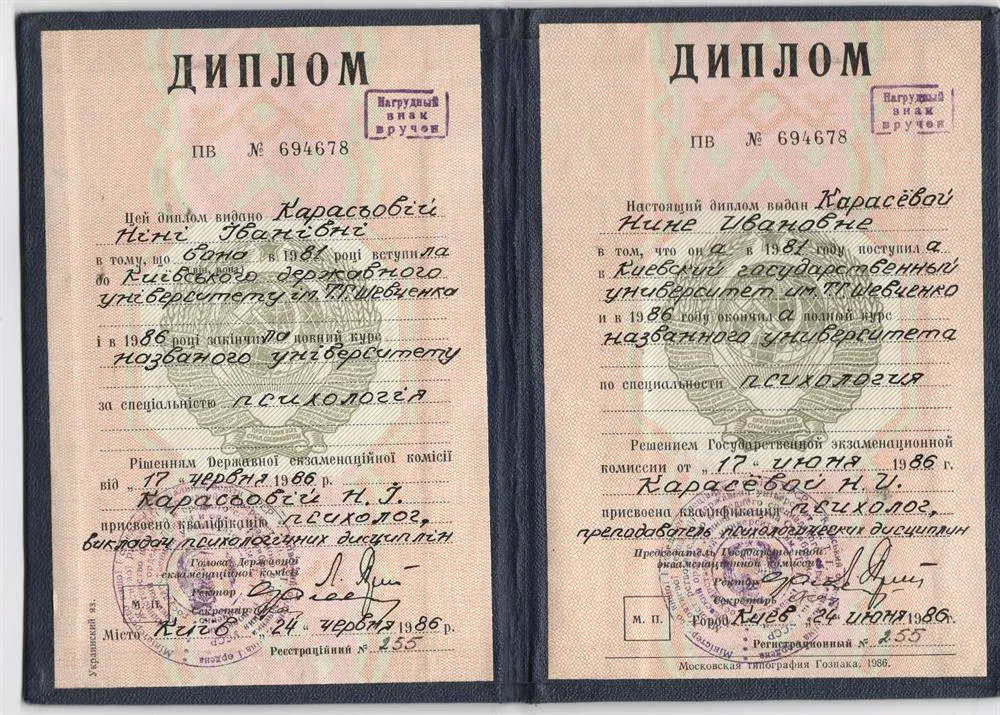 ДИПЛОМ
Нагрудный
знак
вручен
ПВ № 694678
Цей диплом видано Карасьовій
Ніні Іванівні
в тому, що вона в 1981 році вступила
(він, вона)
до Київського державного
університету ім. Т.Г. Шевченка
і в 1986 році закінчила повний курс
названого університету
за спеціальністю психологія
Рішенням Державної екзаменаційної комісії
від „17“ червня 1986 р.
Карасьовій Н. І.
присвоєно кваліфікацію психолог,
викладач психологічних дисциплін
Голова Державної
екзаменаційної комісії
Ректор
Секретар
М. П.
Місто Київ „24“ червня 1986 р.
Реєстраційний № 255
Украинский яз.
ДИПЛОМ
Нагрудный
знак
вручен
ПВ № 694678
Настоящий диплом выдан Карасёвой
Нине Ивановне
в том, что она в 1981 году поступила
в Киевский государственный
университет им. Т.Г. Шевченко
и в 1986 году окончила полный курс
названного университета
по специальности психология
Решением Государственной экзаменационной
комиссии от „17“ июня 1986 г.
Карасёвой Н. И.
присвоена квалификация психолог,
преподаватель психологических дисциплин
Председатель Государственной
экзаменационной комиссии
Ректор
Секретарь
М. П.
Город Киев, 24 июня 1986г.
Регистрационный № 255
Московская типография Гознака. 1986.